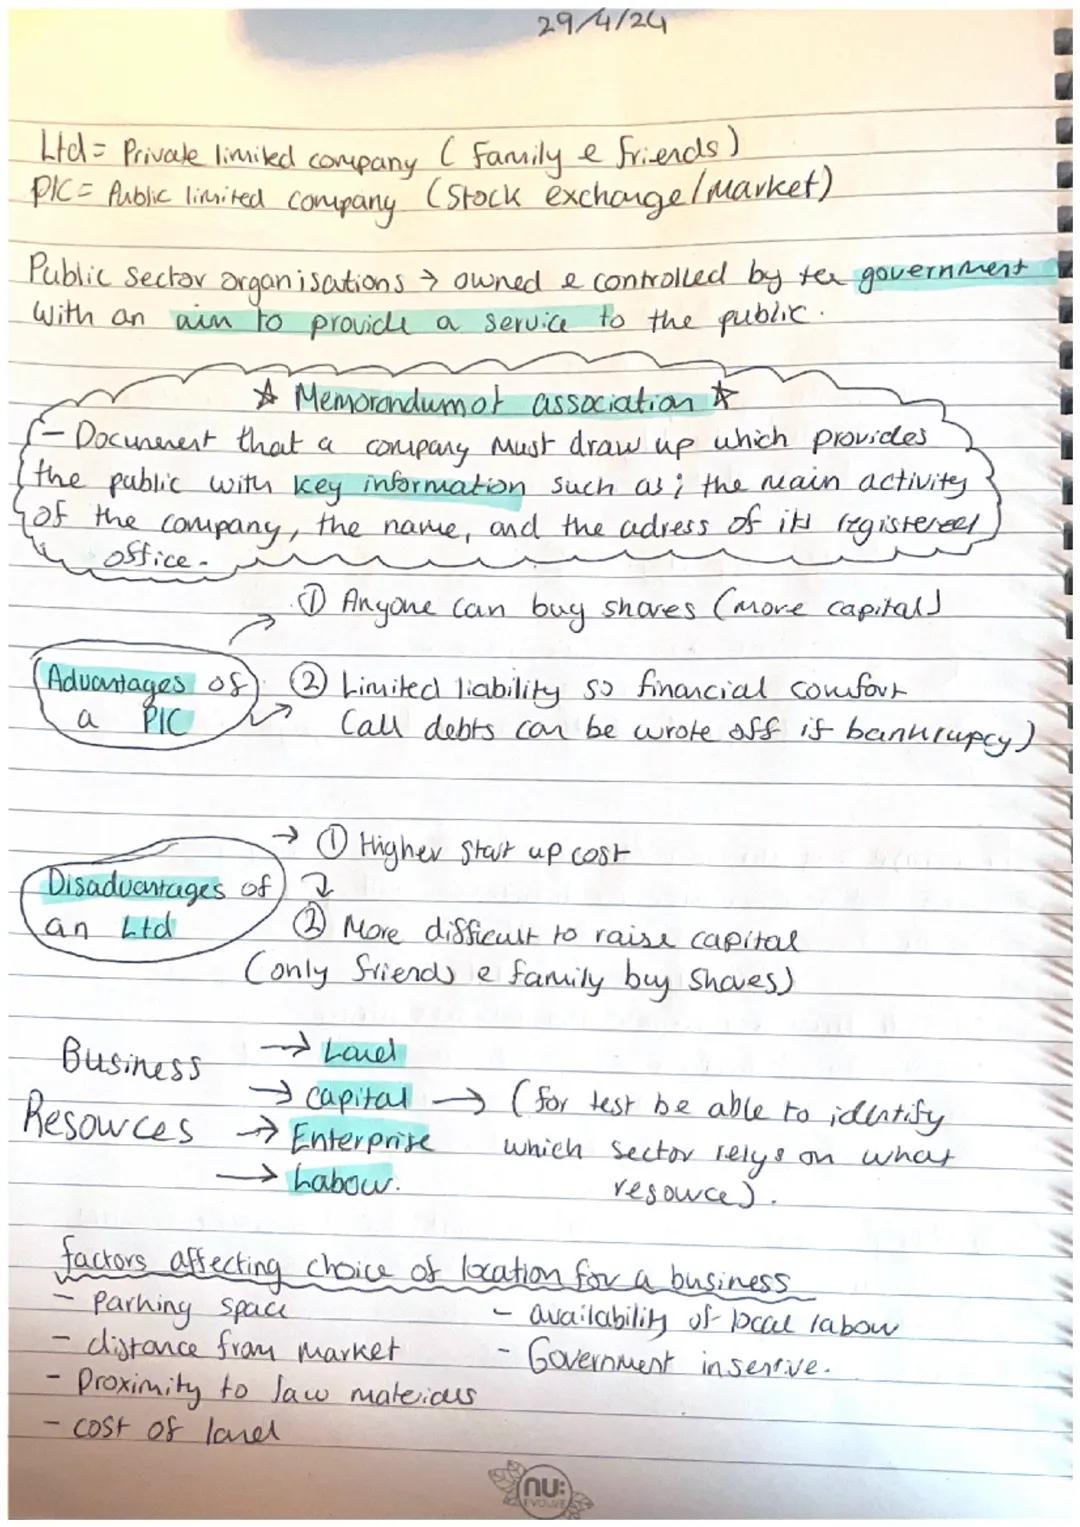 29/4/24
Ltd = Private limited company ( family & friends )
PlC = Public limited company ( Stock exchange / Market )
Public sector organisations → owned & controlled by the government
with an aim to provide a service to the public .
☆ Memorandum of association ☆
- Document that a company must draw up which provides
the public with key information such as ; the main activity
of the company, the name, and the adress of its registered
office .
① Anyone can buy shares (more capital)
Advantages of
a PlC
② Limited liability so financial comfort
(all debts can be wrote off if bankrupcy)
→ ① Higher start up cost
Disadvantages of
an Ltd
② More difficult to raise capital
(only friends & family buy shares)
Business
Resources
→ Land
→ Capital → ( for test be able to identify
→ Enterprise which sector relys on what
→ Labour. resource ) .
factors affecting choice of location for a business
- Parking space
- availability of local labour
- distance from market
- Government insentive.
- Proximity to raw materials
- cost of land
nu:
EVOLVE